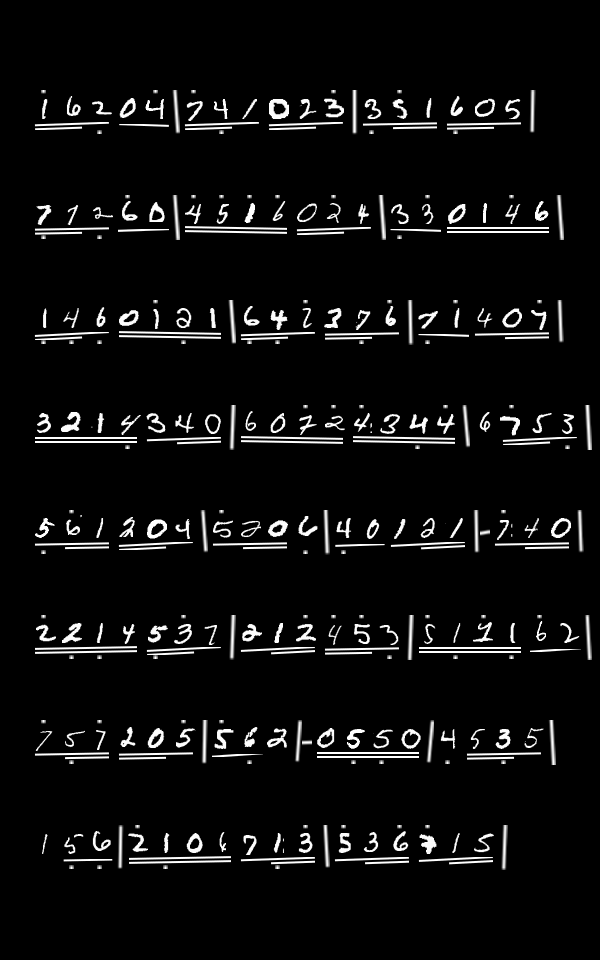 1 6 2 0 4 | 7 4 1 0 2 3 | 3 5 1 6 0 5 |
7 7 2 6 0 | 4 5 1 6 0 2 4 | 3 3 0 1 4 6 |
1 4 6 0 1 2 1 | 6 4 2 3 7 6 | 7 1 4 0 7 |
3 2 1 4 3 4 0 | 6 0 7 2 4 3 4 4 | 6 7 5 3 |
5 6 1 2 0 4 | 5 2 0 6 | 4 0 1 2 1 | - 7 4 0 |
2 2 1 4 5 3 7 | 2 1 2 4 5 3 | 5 1 1 1 6 2 |
7 5 7 2 0 5 | 5 6 2 | - 0 5 5 0 | 4 5 3 5 |
1 5 6 | 2 1 0 6 7 1 3 | 5 3 6 7 1 5 |